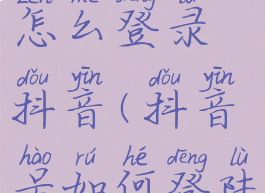 怎么登录
dǒu yīn dǒu yīn
抖音(抖音
hào rú hé dēng lù
号如何登陆